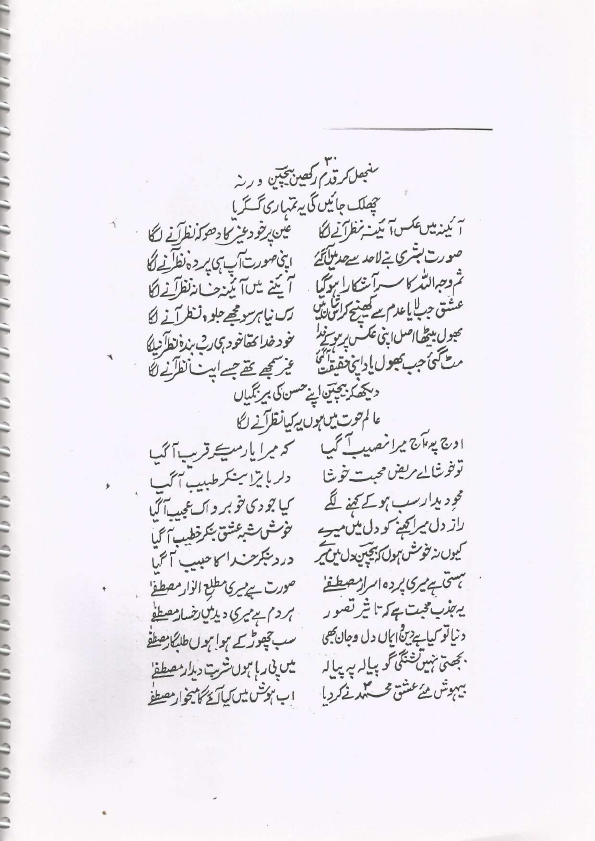 ۳۰
سنبھل کر قدم رکھیں بیچین ورنہ
چھلک جائیں گی یہ تمہاری گگریا
آئینہ میں عکس آئینہ نظر آنے لگا عین پر خود غیر کا دھوکہ نظر آنے لگا
صورت بشری بنے لاحد سے حد میں آگئے اپنی صورت آپ ہی پردہ نظر آنے لگا
ثم وجہ اللہ کا سر آشکارا ہوگیا آئینے میں آئینہ خانہ نظر آنے لگا
عشق جب لایا عدم سے کھینچ کر نظر آنے لگا
بھول بیٹھا اصل اپنی عکس پر ہوکے فدا خود خدا تھا خود ہی رب بندہ نظر آنے لگا
مٹ گئی جب بھول یاد اپنی حقیقت آگئی غیر سمجھے تھے جسے اپنا نظر آنے لگا
دیکھ کہ بیچین اپنے حسن کی بیرنگیاں
عالم حوت میں ہوں یہ کیا نظر آنے لگا
اوج پہ آج میرا نصیب آگیا کہ میرا یار میرے قریب آگیا
تو خوشا اے مریض محبت خوشا دلربا تیرا بنکر طبیب آگیا
محو دیدار سب ہوکے کہنے لگے کیا جودی خوبرو اک عجیب آگیا
راز دل میرا کہنے کو دل میں میرے خوش شبہ عشق بنکر خطیب آگیا
کیوں نہ خوش ہوں کہ بیچین دل میں میرے درد بنکر خدا کا حبیب آگیا
ہستی ہے میری پردہ اسرار مصطفےٰ صورت ہے میری مطلع انوار مصطفےٰ
یہ جذب محبت ہے کہ تاثیر تصور ہر دم ہے میری دید میں رخسار مصطفےٰ
دنیا تو کیا ہے دین و ایماں دل و جان بھی سب چھوڑ کے ہوا ہوں طلبگار مصطفےٰ
بجھتی نہیں تشنگی گو پیالہ پہ پیالہ میں پی رہا ہوں شربت دیدار مصطفےٰ
بیہوش مئے عشق محمدؐ نے کردیا اب ہوش میں کیا آئے گا میخوار مصطفےٰ